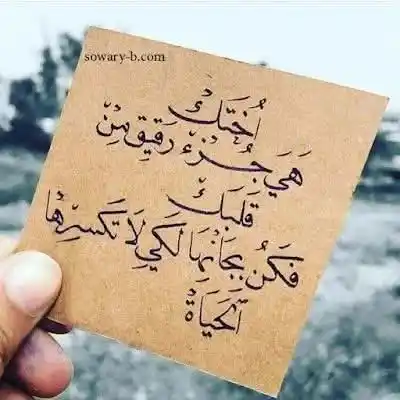 sowary-b.com
أُختَكْ
هَيَ جُزء رَقيق مِنْ
قَلبَكْ
فَكُن بِجَانِبهَا لَكي لَا تَكسرهَا
اَلحَيَاةْ